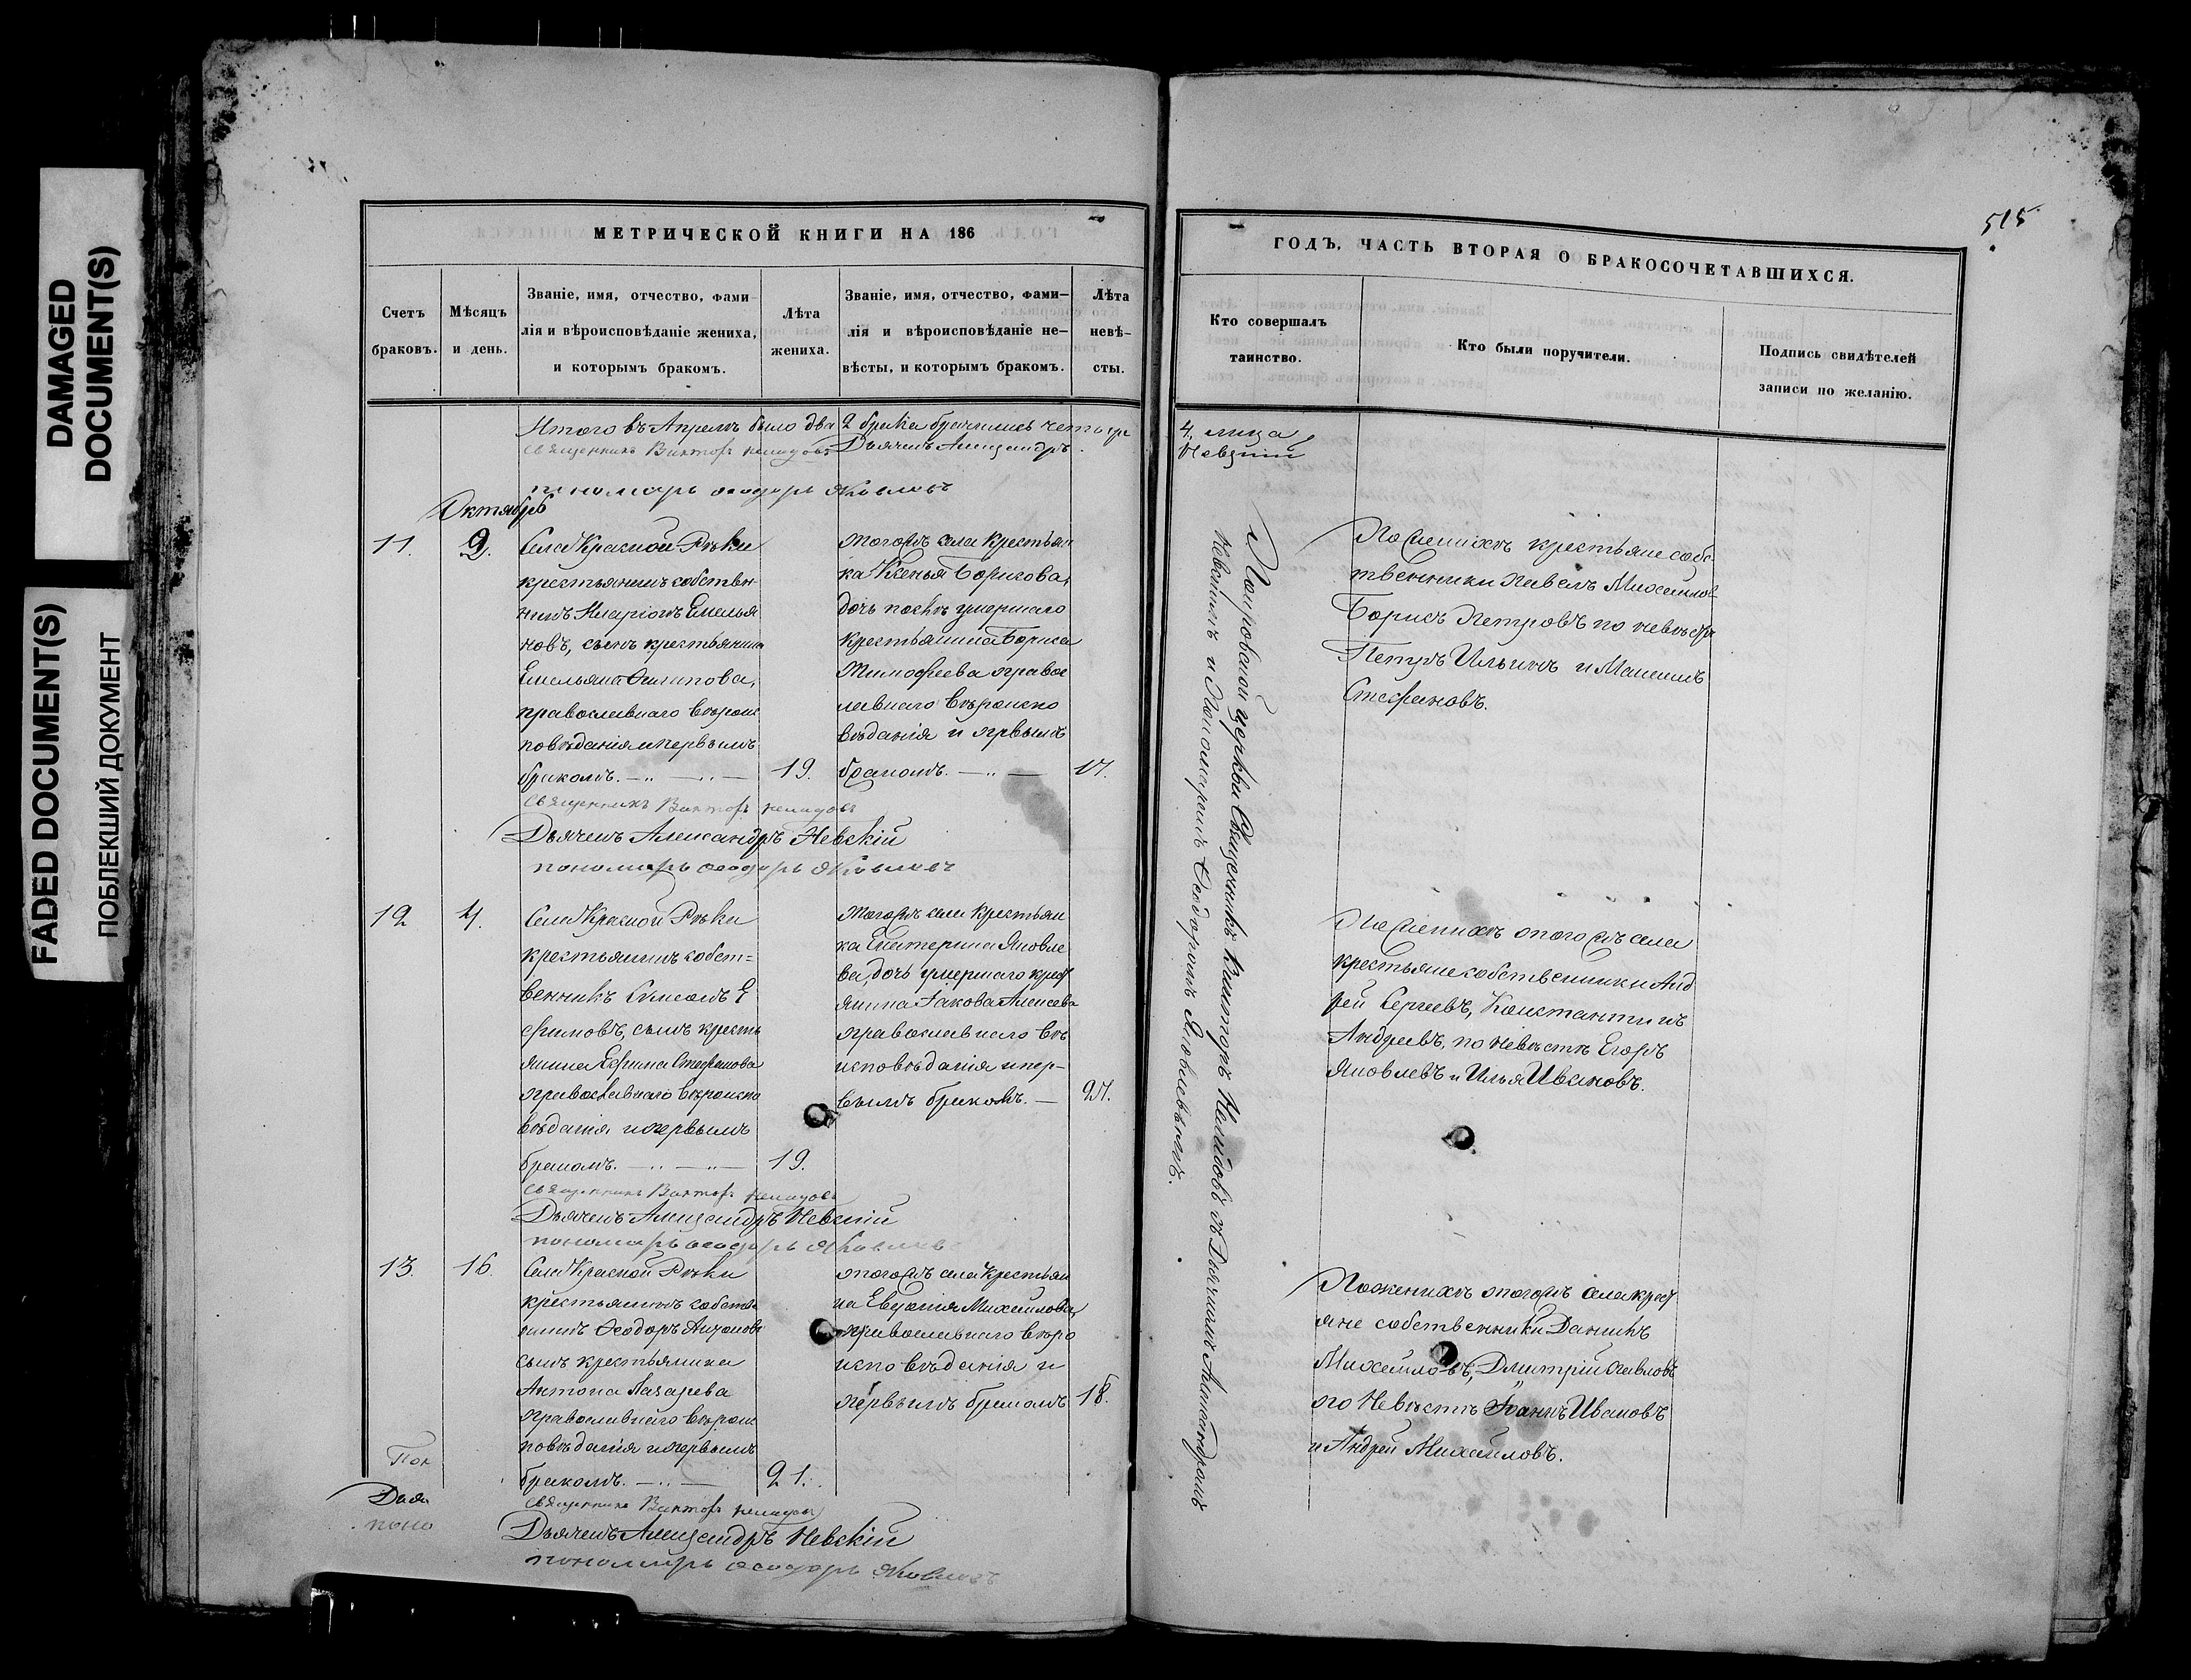 DAMAGED
DOCUMENT(S)
FADED DOCUMENT(S)
ПОБЛЕКШИЙ ДОКУМЕНТ
МЕТРИЧЕСКОЙ КНИГИ НА 186
Счетъ
браковъ.
Мѣсяцъ
и день.
Званіе, имя, отчество, фами-
лія и вѣроисповѣданіе жениха,
и которымъ бракомъ.
Лѣта
жениха.
Званіе, имя, отчество, фами—
лія и вѣроисповѣданіе не—
вѣсты, и которымъ бракомъ.
Лѣта
невѣ-
сты.
Итого въ Апрелѣ было два 2 брака бра­чились четыре
Священникъ Викторъ Нелидовъ Дьячекъ Александръ
пономарь Ѳеодоръ Яковлевъ
Октябрь
11.
9.
Села Красной Рѣки
крестьянинъ собствен
никъ Иларіонъ Емелья
новъ, сынъ крестьянина
Емельяна Филипова,
православнаго вѣроис
повѣданія и первымъ
бракомъ.
19.
тогожъ села крестьян
ка Ксенья Борисова,
дочь послѣ умершаго
крестьянина Бориса
Тимофеева право
славнаго вѣроиспо
вѣданія и первымъ
бракомъ.
17.
Священникъ Викторъ Нелидовъ
Дьячекъ Александръ Невскій
пономарь Ѳеодоръ Яковлевъ
12
4.
Села Красной Рѣки
крестьянинъ собст=
венникъ Симеонъ Е
фимовъ, сынъ кресть
янина Ефима Стефанова
православнаго вѣроиспо
вѣданія и первымъ
бракомъ.
19.
тогожъ села крестьян
ка Екатерина Яковле
ва, дочь умершаго крест
янина Іакова Алексева
православнаго вѣ
исповѣданія и пер-
вымъ бракомъ.
27.
Священникъ Викторъ Нелидовъ
Дьячекъ Александръ Невскій
пономарь Ѳеодоръ Яковлевъ
13.
16.
Села Красной Рѣки
крестьянинъ собствен
никъ Ѳеодоръ Антоновъ
сынъ крестьянина
Антона Лазарева
православнаго вѣроис
повѣданія и первымъ
бракомъ.
21.
тогожъ села крестьян
ка Евдокія Михайлова,
православнаго вѣро
исповѣданія и
первымъ бракомъ
18.
Священникъ Викторъ Нелидовъ
Дьячекъ Александръ Невскій
пономарь Ѳеодоръ Яковлевъ
515
ГОДЪ, ЧАСТЬ ВТОРАЯ О БРАКОСОЧЕТАВШИХСЯ.
Кто совершалъ
таинство.
Кто были поручители.
Подпись свидѣтелей
записи по желанію.
4, лица
Невскій
Покровской церкви Священникъ Викторъ Нелидовъ съ Дьячкомъ Александромъ
Невскимъ и Пономаремъ Ѳеодоромъ Яковлевымъ.
По женихѣ крестьяне собс
твенники Павелъ Михайлов
Борисъ Петровъ по невѣстѣ
Петръ Ильинъ и Максимъ
Стефановъ.
По женихѣ тогожъ села
крестьяне собственники Анд
рей Сергеевъ, Константинъ
Андреевъ, по невѣстѣ Егоръ
Яковлевъ и Илья Ивановъ.
По женихѣ тогожъ села крест
яне собственники Даніилъ
Михайловъ, Дмитрій Павловъ
по Невѣстѣ Іоаннъ Ивановъ
и Андрей Михайловъ.